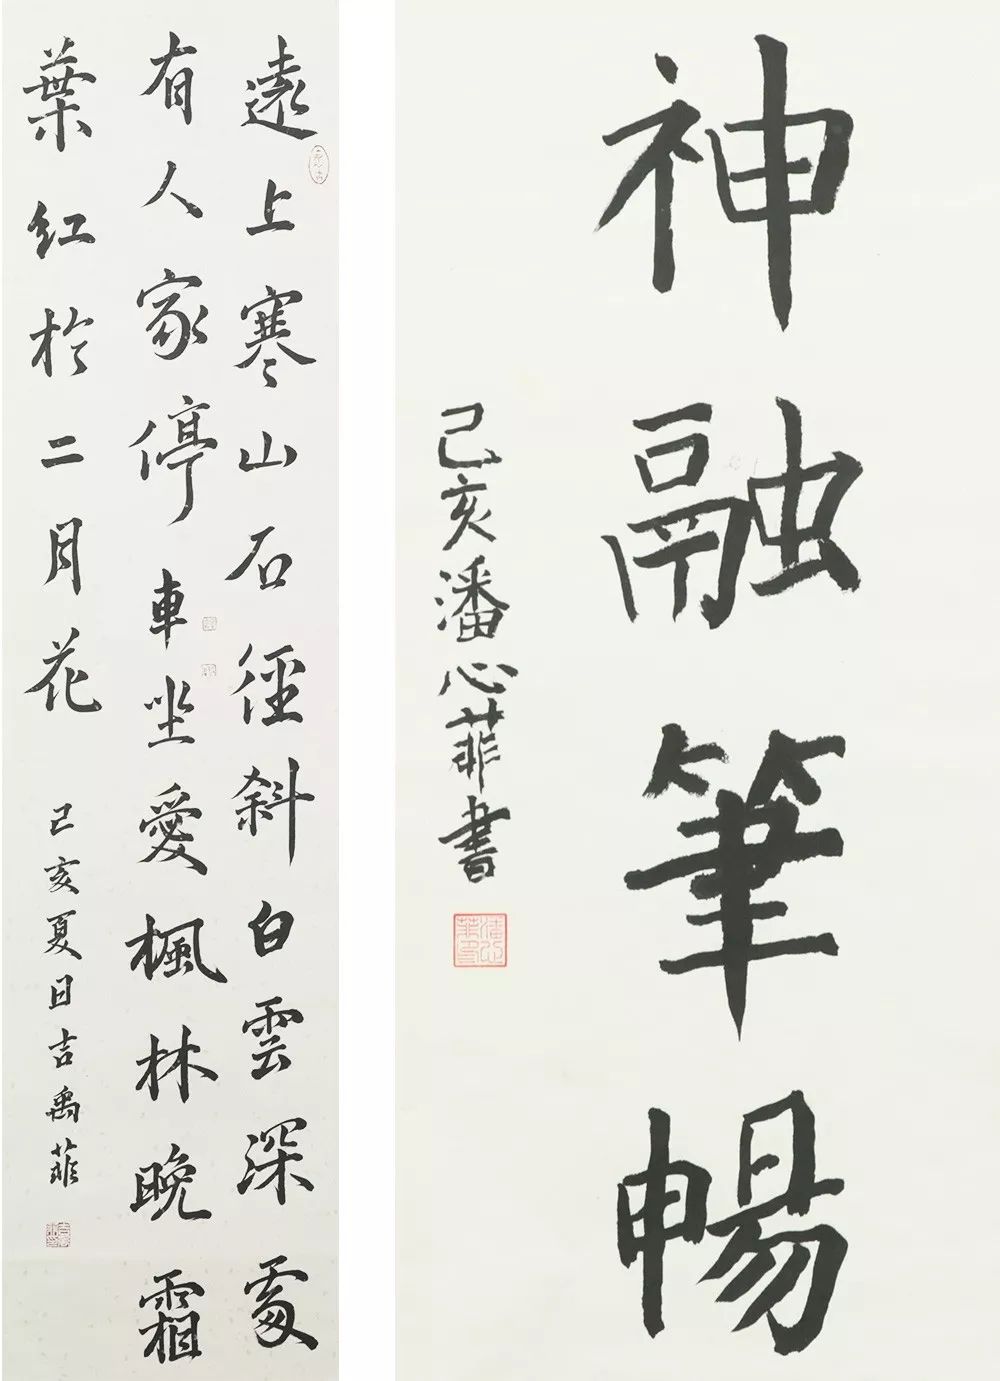 遠上寒山石徑斜白雲深處
有人家停車坐愛楓林晚霜
葉紅於二月花
己亥夏日吉禹菲
神融筆暢
己亥潘心菲書
潘心菲印